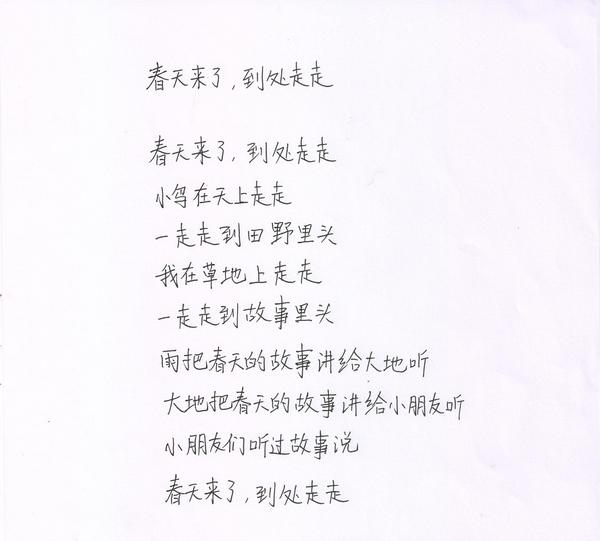 春天来了，到处走走
春天来了，到处走走
小鸟在天上走走
一走走到田野里头
我在草地上走走
一走走到故事里头
雨把春天的故事讲给大地听
大地把春天的故事讲给小朋友听
小朋友们听过故事说
春天来了，到处走走